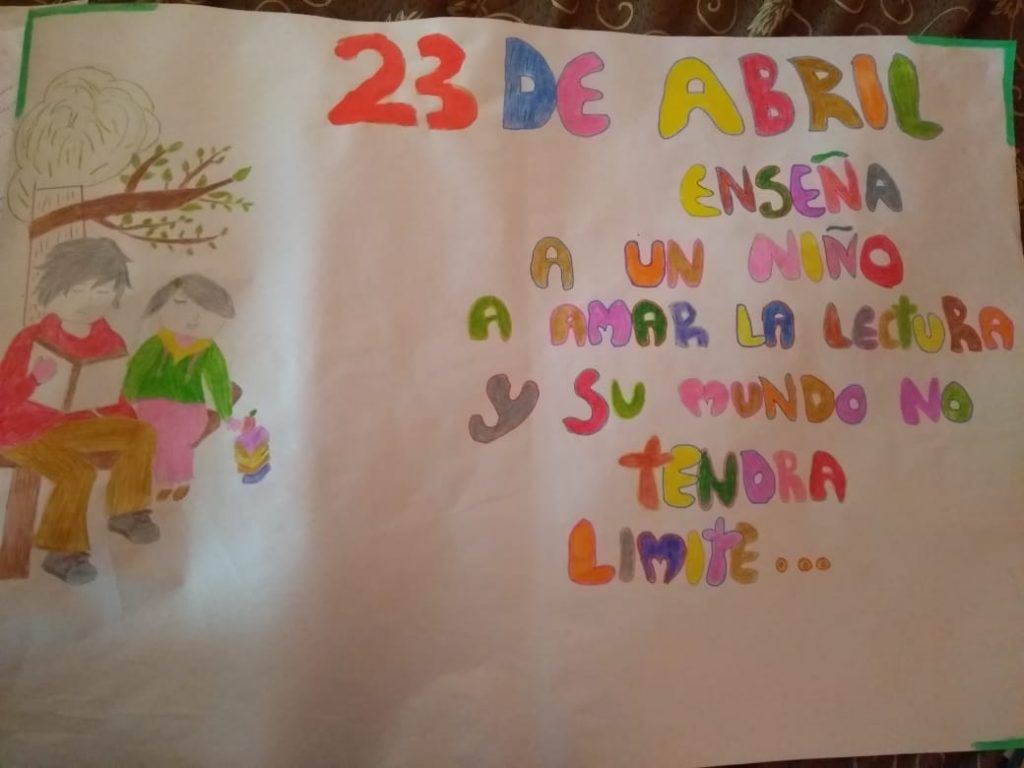 23 DE ABRIL
ENSEÑA
A UN NIÑO
A AMAR LA LECTURA
Y SU MUNDO NO
TENDRA
LIMITE...